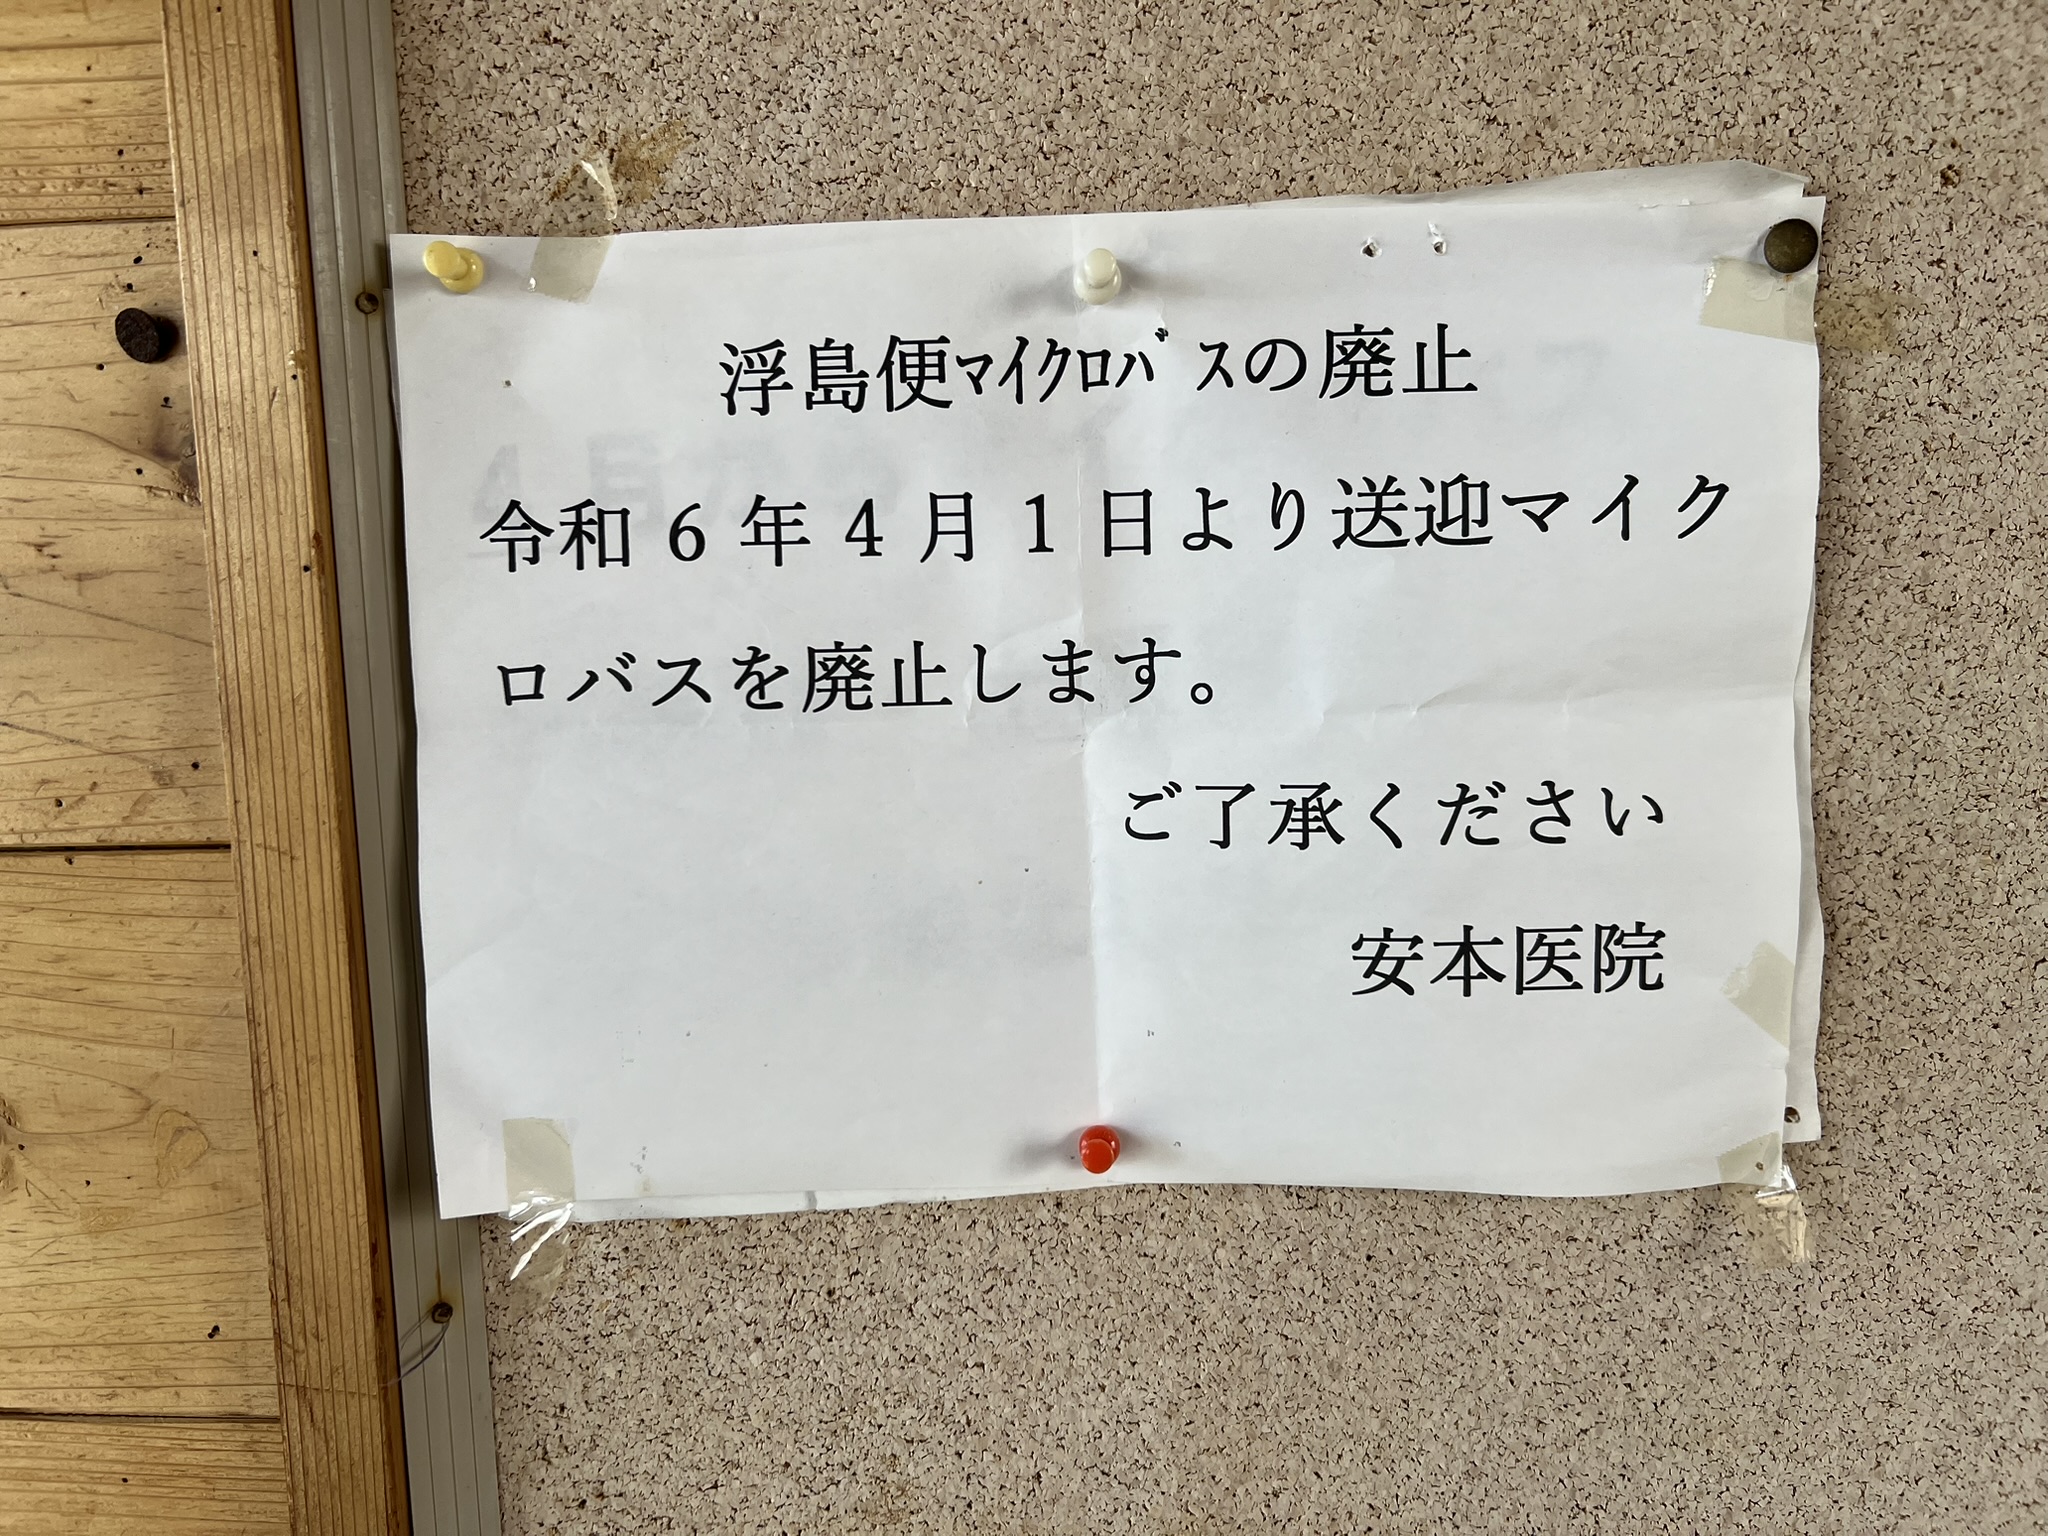 浮島便ﾏｲｸﾛﾊﾞｽの廃止
令和６年４月１日より送迎マイク
ロバスを廃止します。
ご了承ください
安本医院